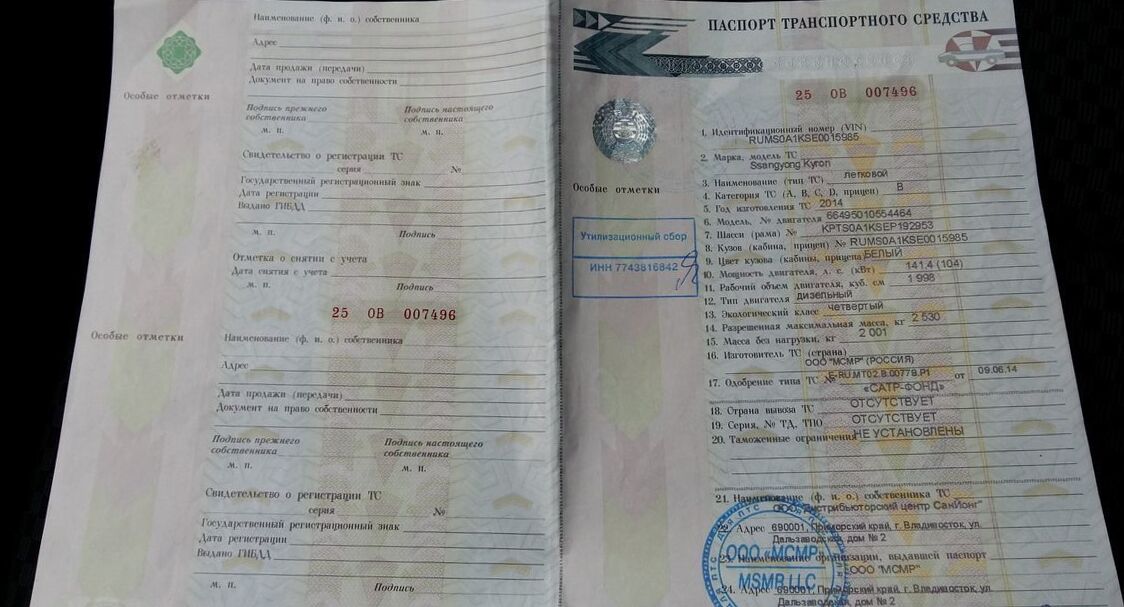 Наименование (ф. и. о.) собственника
Адрес
Дата продажи (передачи)
Документ на право собственности
Особые отметки
Подпись прежнего собственника
Подпись настоящего собственника
м. п.
м. п.
Свидетельство о регистрации ТС
серия №
Государственный регистрационный знак
Дата регистрации
Выдано ГИБДД
м. п.
Подпись
Отметка о снятии с учета
Дата снятия с учета
м. п.
Подпись
25 ОВ 007496
Особые отметки
Наименование (ф. и. о.) собственника
Адрес
Дата продажи (передачи)
Документ на право собственности
Подпись прежнего собственника
Подпись настоящего собственника
м. п.
м. п.
Свидетельство о регистрации ТС
серия №
Государственный регистрационный знак
Дата регистрации
Выдано ГИБДД
м. п.
Подпись
ПАСПОРТ ТРАНСПОРТНОГО СРЕДСТВА
25 ОВ 007496
Особые отметки
Утилизационный сбор
ИНН 7743816842
1. Идентификационный номер (VIN)
RUMS0A1KSE0015985
2. Марка, модель ТС
Ssangyong Kyron
3. Наименование (тип ТС) легковой
4. Категория ТС (А, В, С, D, прицеп) В
5. Год изготовления ТС 2014
6. Модель, № двигателя 66495010554464
7. Шасси (рама) № KPTS0A1KSEP192953
8. Кузов (кабина, прицеп) № RUMS0A1KSE0015985
9. Цвет кузова (кабины, прицепа) БЕЛЫЙ
10. Мощность двигателя, л. с. (кВт) 141,4 (104)
11. Рабочий объем двигателя, куб. см 1 998
12. Тип двигателя дизельный
13. Экологический класс четвертый
14. Разрешенная максимальная масса, кг 2 530
15. Масса без нагрузки, кг 2 001
16. Изготовитель ТС (страна)
ООО "МСМР" (РОССИЯ)
17. Одобрение типа ТС № E-RU.MT02.B.00778.P1 от 09.06.14
«САТР-ФОНД»
18. Страна вывоза ТС ОТСУТСТВУЕТ
19. Серия, № ТД, ТПО ОТСУТСТВУЕТ
20. Таможенные ограничения НЕ УСТАНОВЛЕНЫ
21. Наименование (ф. и. о.) собственника ТС
ООО "Дистрибьюторский центр СанЙонг"
22. Адрес 690001, Приморский край, г. Владивосток, ул.
Дальзаводская, дом № 2
23. Наименование организации, выдавшей паспорт
ООО "МСМР"
24. Адрес 690001, Приморский край, г. Владивосток, ул.
Дальзаводская, дом № 2
ООО «МСМР»
MSMR LLC